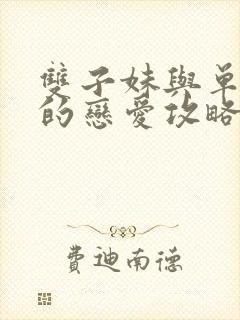 雙子妹與單
的戀愛攻略
費迪南德